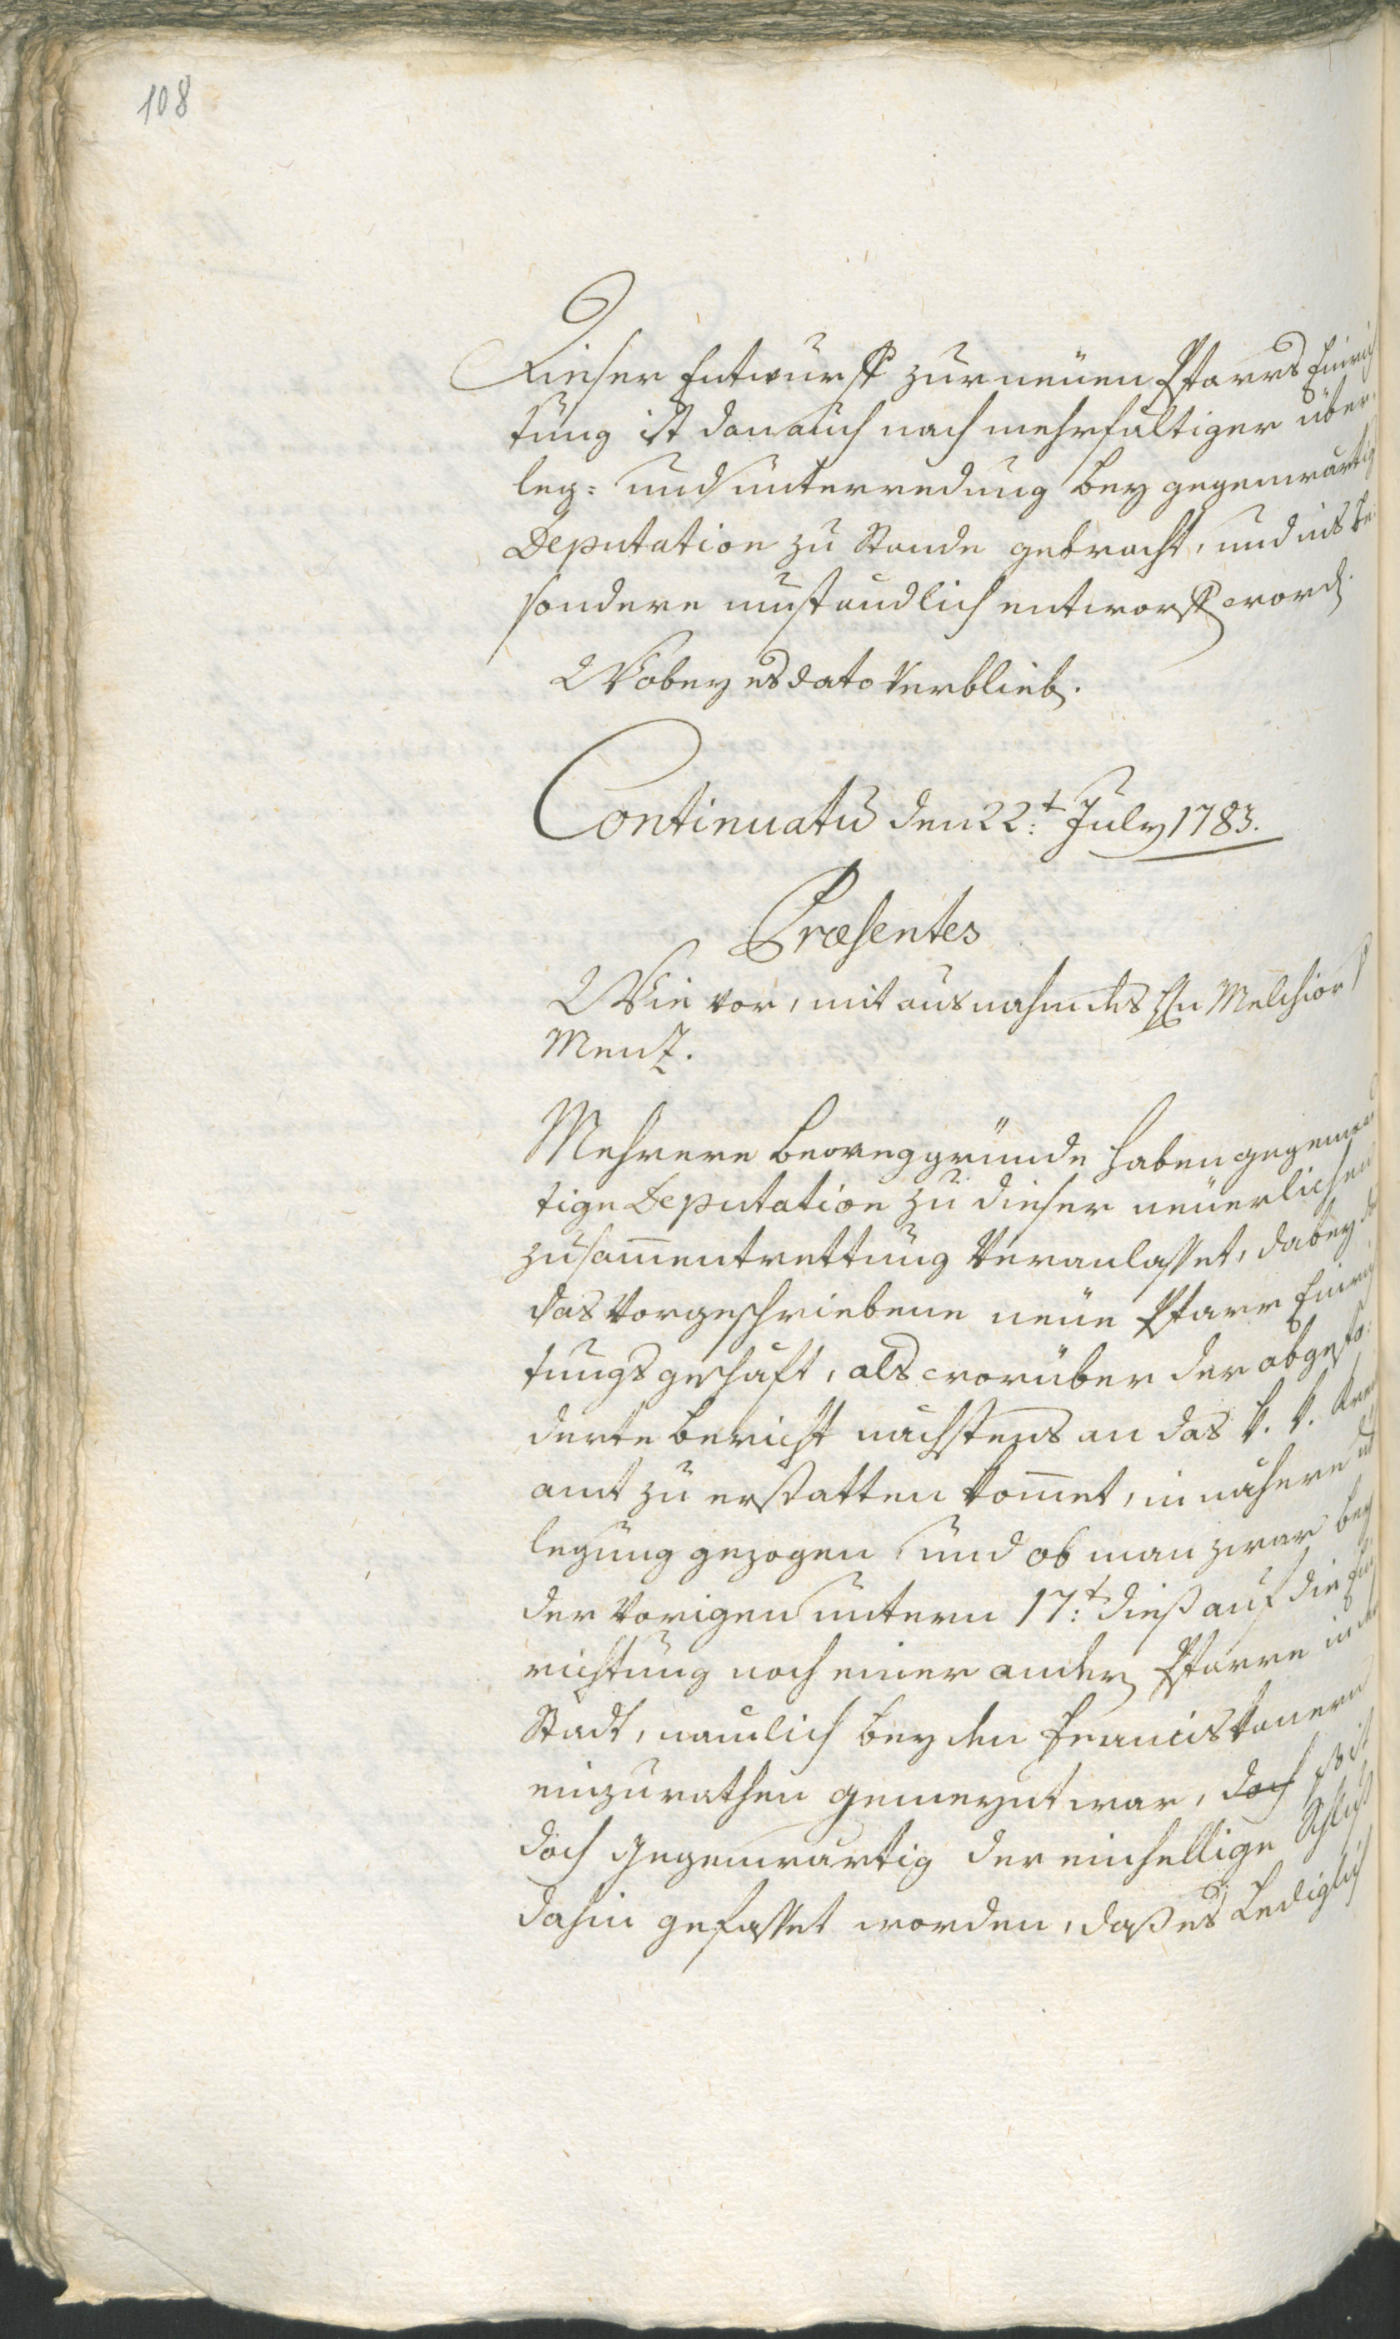 108
Dieser Entwurff zur neuen Pfarrs Einrich
tung ist dann auch nach mehrfältiger über
leg: und unterredung bey gegenwärtig
Deputation zu Stande gebracht, und ins be
sondere umständlich entworffen word.
Wobey es dato Verblieb.
Continuatu den 22:t July 1783.
Præsentes
Wie vor, mit ausnahm des Hn Melchior
Menz.
Mehrere beweggründe haben gegenwär
tige Deputation zu dieser neuerlichen
zusammentrettung Veranlasset, dabey
das Vorgeschriebene neue Pfarr Einrich
tungs geschäft, als worüber der abgefo
derte bericht nächstens an das k. k. Krei
amt zu erstatten kommet, in nähere
legung gezogen und ob man zwar bey
der Vorigen untern 17:t dieß auf die Ein
richtung noch einer andern Pfarre in der
Stadt, nämlich bey den Franciskanern
einzurathen gemeynt war, doch so ist
doch gegenwärtig der einhellige Schluß
dahin gefasset worden, daß es Lediglich